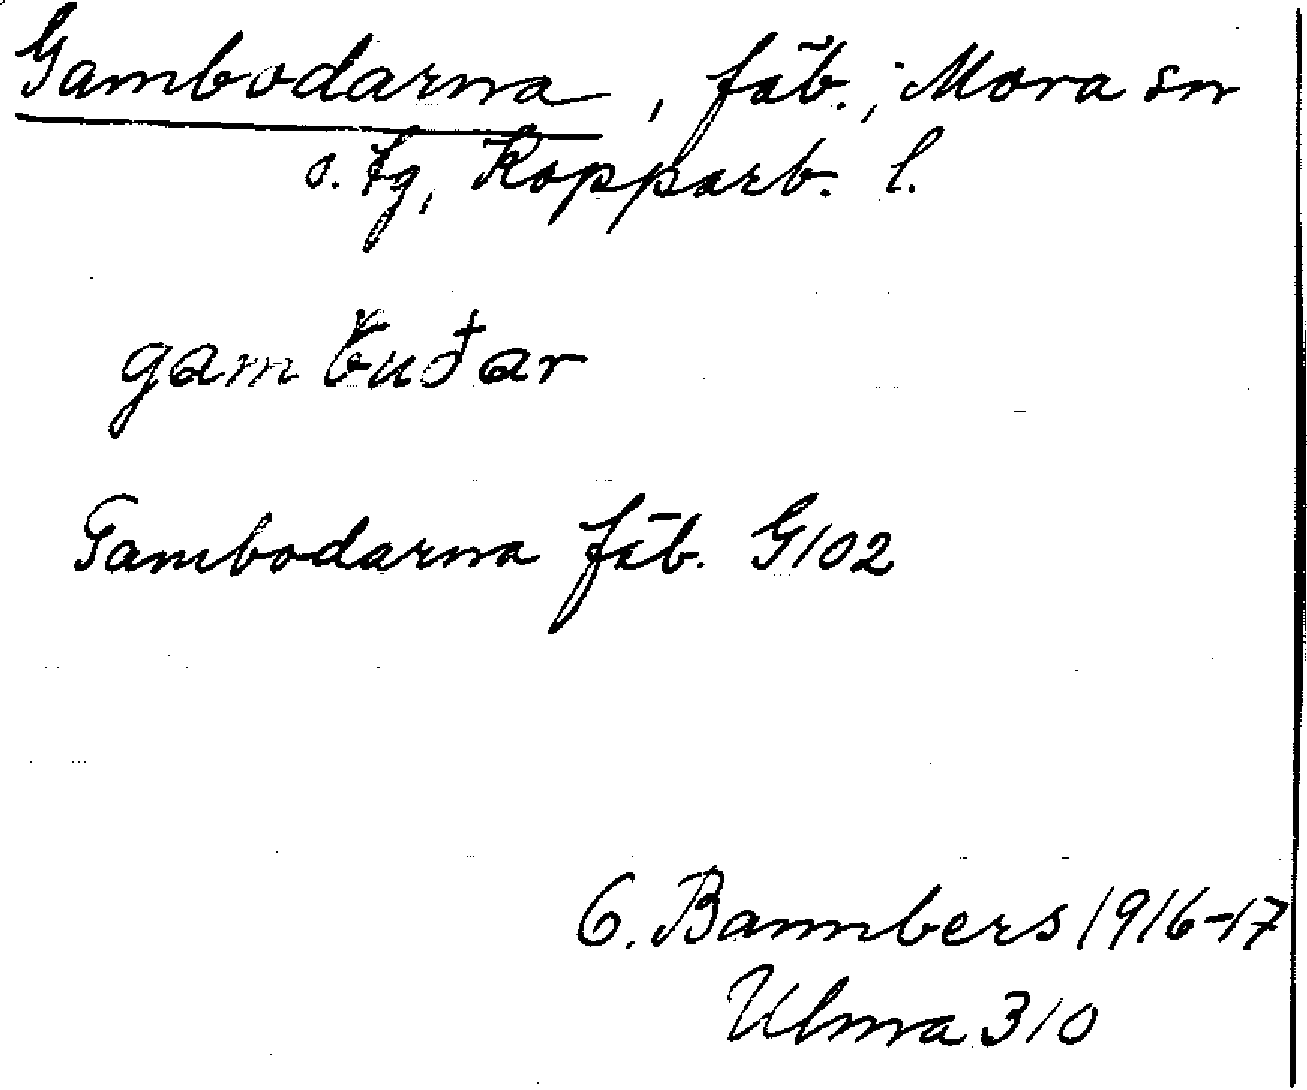 Gambodarna, fäb., Mora sn
o. tg, Kopparb. l.
gambuđar
Gambodarna fäb. G102
O. Bannbers 1916-17
Ulma 310